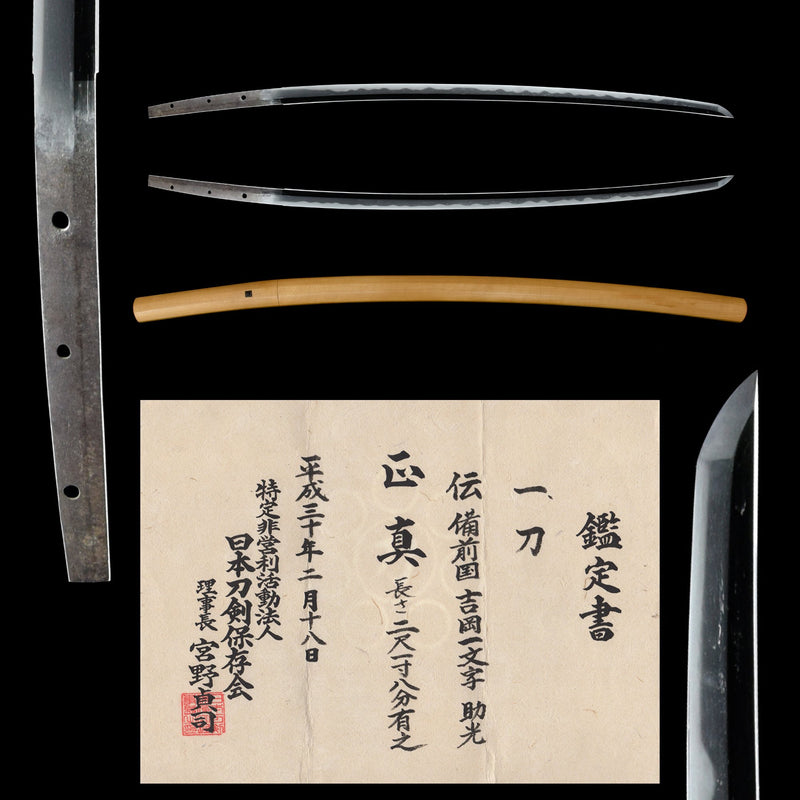 鑑定書
一、刀
伝 備前国 吉岡一文字 助光
正真 長さ 二尺一寸八分有之
平成三十年二月十八日
特定非営利活動法人
日本刀剣保存会
理事長 宮野貞司